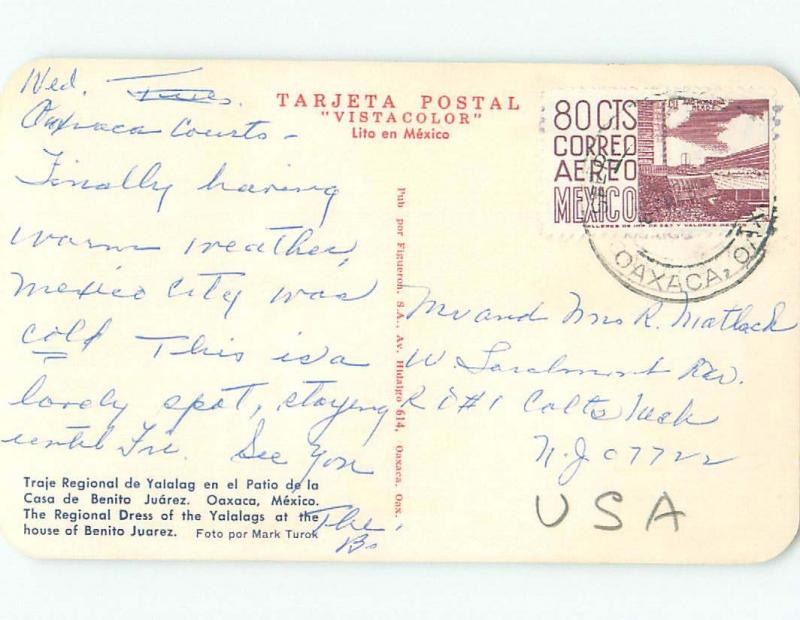 Wed. Tues.
Oaxaca Courts -
Finally having
warm weather,
Mexico City was
cold This is a
lovely spot, staying
until Fri. See you
The
TARJETA POSTAL
"VISTACOLOR"
Lito en México
80 CTS
CORREO
AEREO
MEXICO
OAXACA, OAX
Pub por Figueroa. S.A., Av. Hidalgo 614, Oaxaca, Oax.
Mr and Mrs R. Matlack
W.
R D #1 Colts Neck
N.J 07722
USA
Traje Regional de Yalalag en el Patio de la
Casa de Benito Juárez. Oaxaca, México.
The Regional Dress of the Yalalags at the
house of Benito Juarez. Foto por Mark Turok